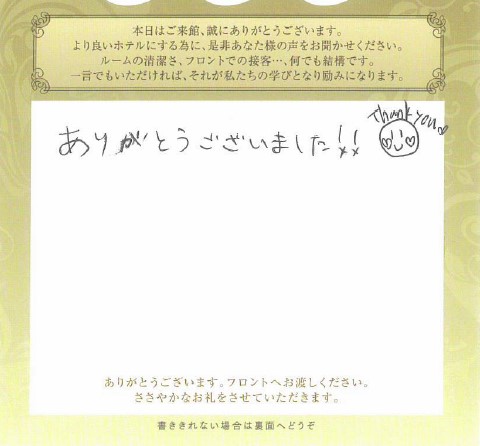 本日はご来館、誠にありがとうございます。
より良いホテルにする為に、是非あなた様の声をお聞かせください。
ルームの清潔さ、フロントでの接客…、何でも結構です。
一言でもいただければ、それが私たちの学びとなり励みになります。
Thank you
ありがとうございました!!
ありがとうございます。フロントへお渡しください。
ささやかなお礼をさせていただきます。
書ききれない場合は裏面へどうぞ